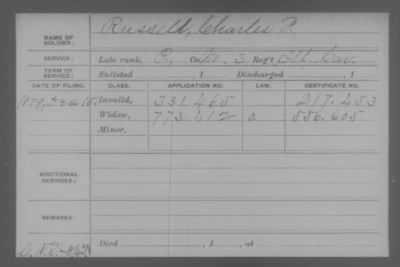 NAME OF SOLDIER: Russell, Charles P.
SERVICE: Late rank, Co. M, 3 Reg't Cav.
TERM OF SERVICE: Enlisted , 1 Discharged , 1
DATE OF FILING. CLASS. APPLICATION NO. LAW. CERTIFICATE NO.
Invalid, 331.465 217.453
Widow, 773.412
Minor,
ADDITIONAL SERVICES:
REMARKS:
Died , 1 , at